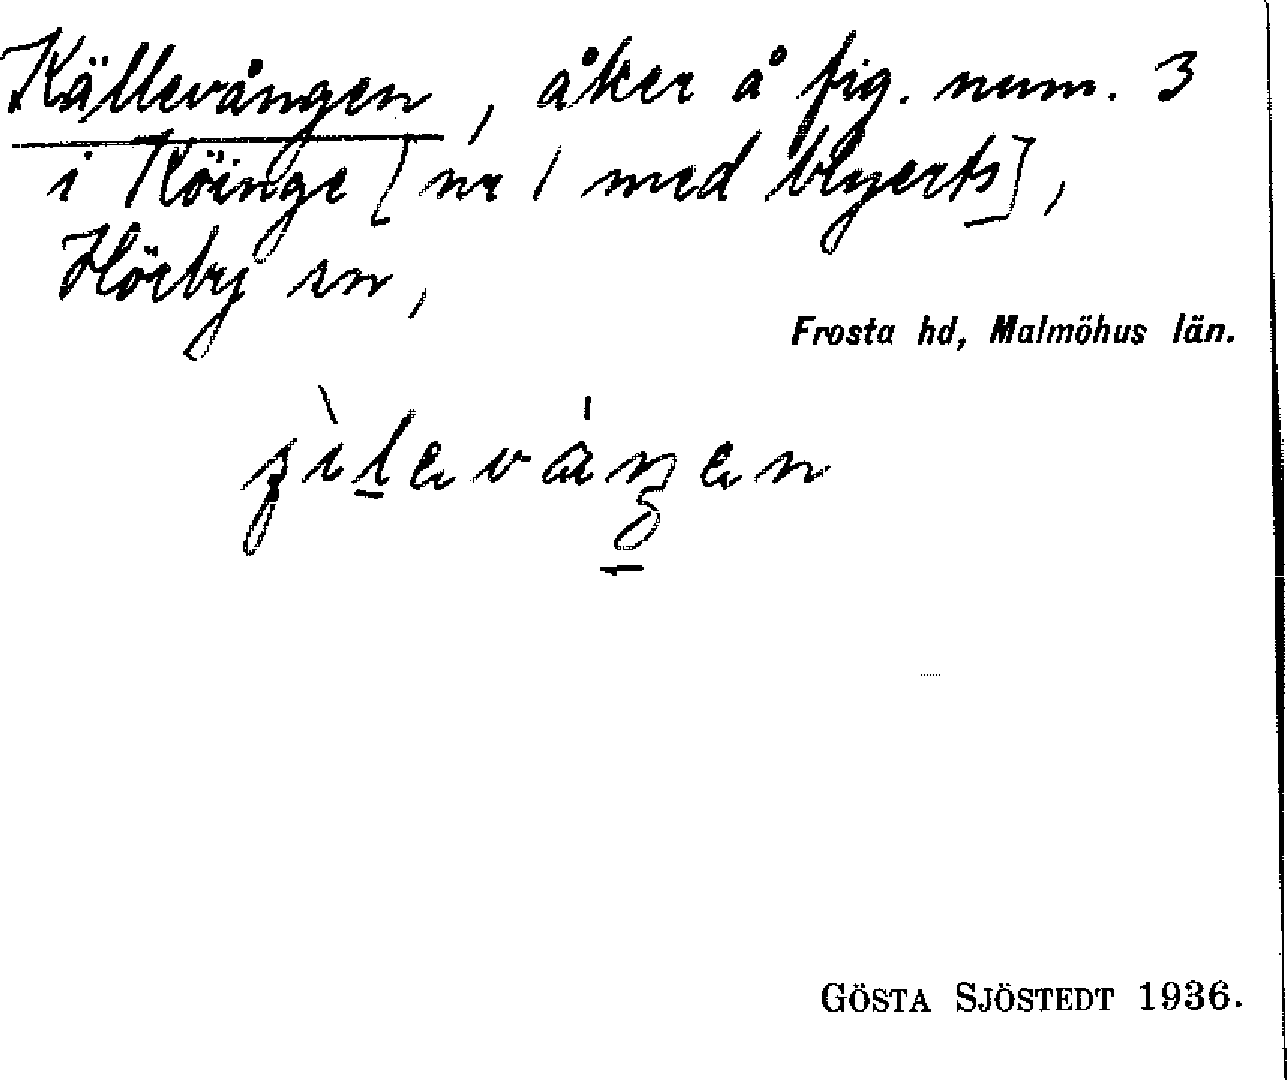 Källevången, åker å fig. num. 3
i Köinge [nr 1 med blyerts],
Hörby sn,
Frosta hd, Malmöhus län.
GÖSTA SJÖSTEDT 1936.